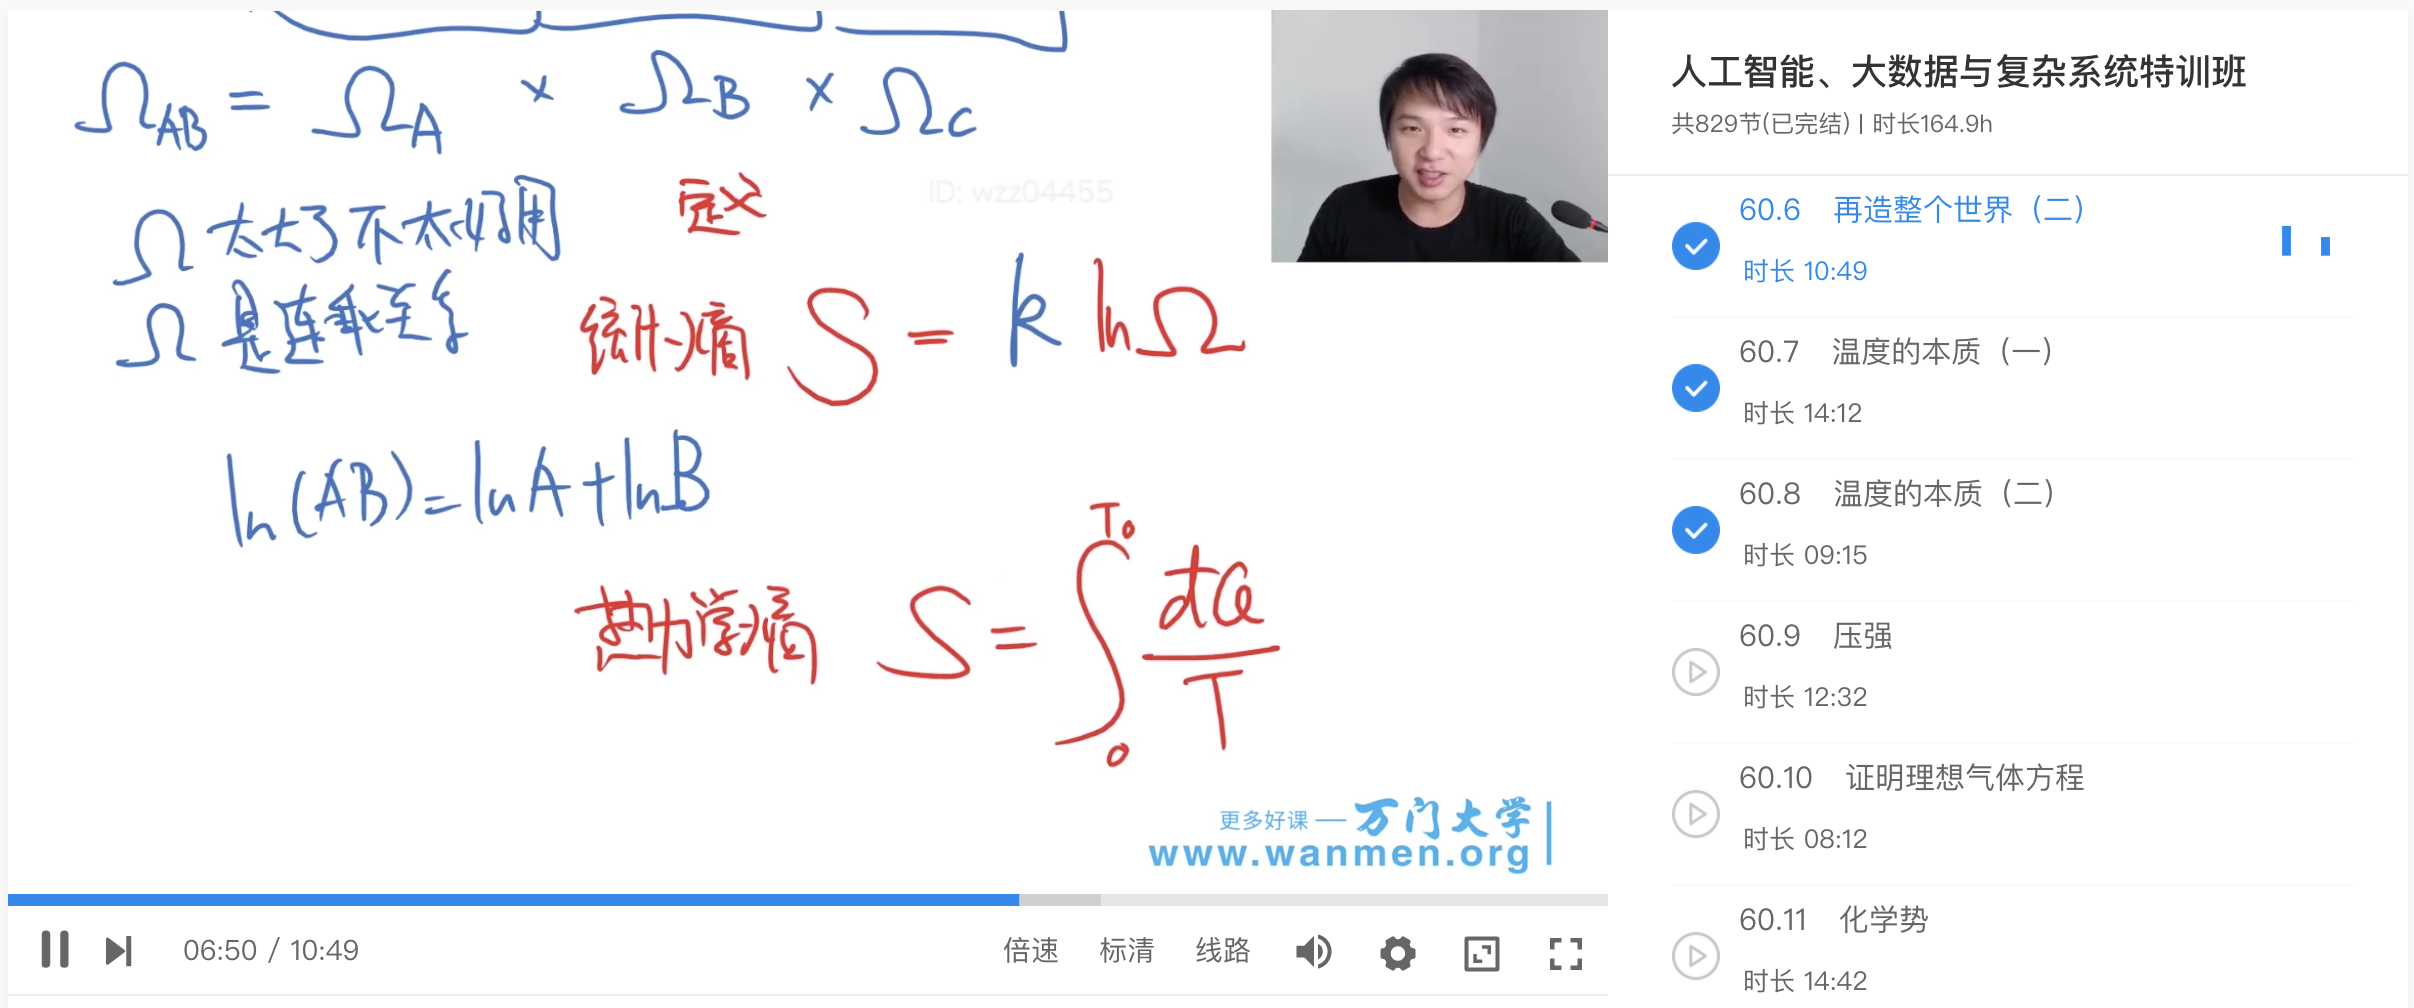 Ω_AB = Ω_A × Ω_B × Ω_C
Ω 太大了不太好用
定义
ID: wzz04455
Ω 是连乘关系
统计熵 S = k lnΩ
ln(AB)=lnA+lnB
热力学熵 S = ∫_0^T₀ dQ/T
更多好课 — 万门大学
www.wanmen.org
06:50 / 10:49
倍速 标清 线路
人工智能、大数据与复杂系统特训班
共829节(已完结) | 时长164.9h
60.6 再造整个世界（二）
时长 10:49
60.7 温度的本质（一）
时长 14:12
60.8 温度的本质（二）
时长 09:15
60.9 压强
时长 12:32
60.10 证明理想气体方程
时长 08:12
60.11 化学势
时长 14:42